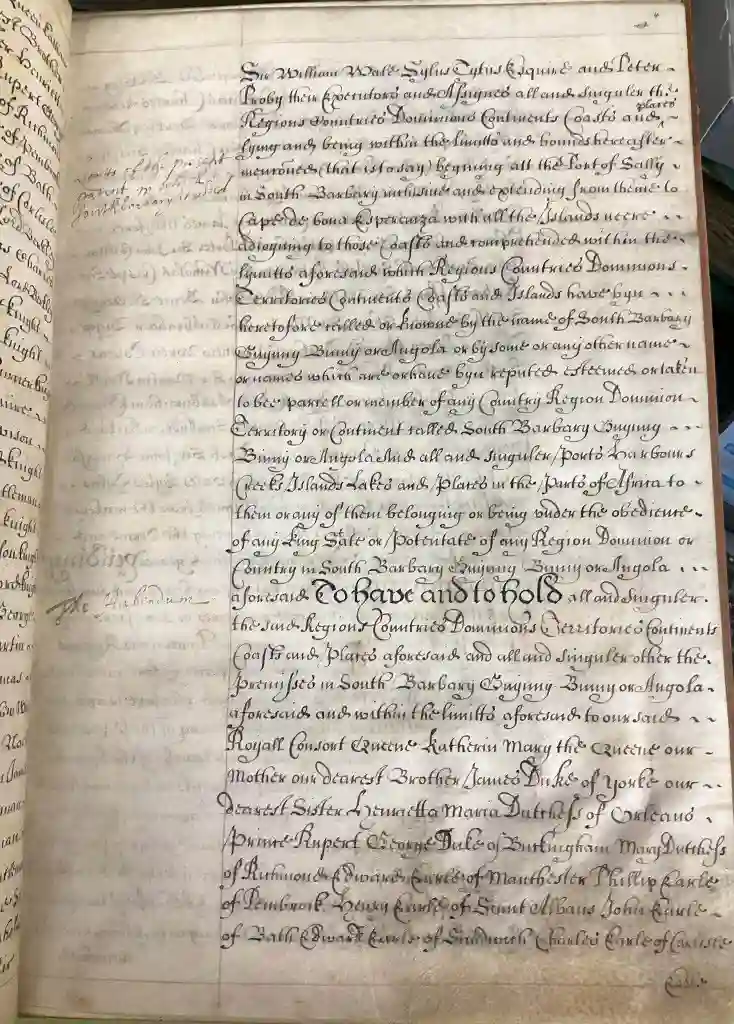 Sir William Wale Sylus Tytus Esquire and Peter
Proby their Executors and Assignes all and singuler the
Regions Countries Dominions Continents Coasts and places
lying and being within the limitts and bounds hereafter
menconed (that is to say) begining att the Port of Sally
in South Barbary inclusive and extending from thence to
Cape de bona Esperanza with all the Islands neere
adioyning to those Coasts and comprehended within the
lymitts aforesaid which Regions Countries Dominions
Territories Continents Coasts and Islands have byn
heretofore called or knowne by the name of South Barbary
Guyny Binny or Angola or by some or any other name
or names which are or have byn reputed esteemed or taken
to bee parcell or member of any Country Region Dominion
Territory or Continent called South Barbary Guyny
Binny or Angola And all and singuler Ports Harbours
Creeks Islands Lakes and Places in the Parts of Africa to
them or any of them belonging or being under the obedience
of any King State or Potentate of any Region Dominion or
Country in South Barbary Guyny Binny or Angola
Limits of the present
The Habendum
aforesaid To have and to hold all and singuler
the said Regions Countries Dominions Territories Continents
Coasts and Places aforesaid and all and singuler other the
Premisses in South Barbary Guyny Binny or Angola
aforesaid and within the limitts aforesaid to our said
Royall Consort Queene Katherin Mary the Queene our
Mother our dearest Brother James Duke of Yorke our
dearest Sister Henrietta Maria Dutchess of Orleans
Prince Rupert George Duke of Buckingham Mary Dutchess
of Richmond Edward Earle of Manchester Phillip Earle
of Pembrock Henry Earle of Saint Albans John Earle
of Bath Edward Earle of Sandwich Charles Earle of Carlisle